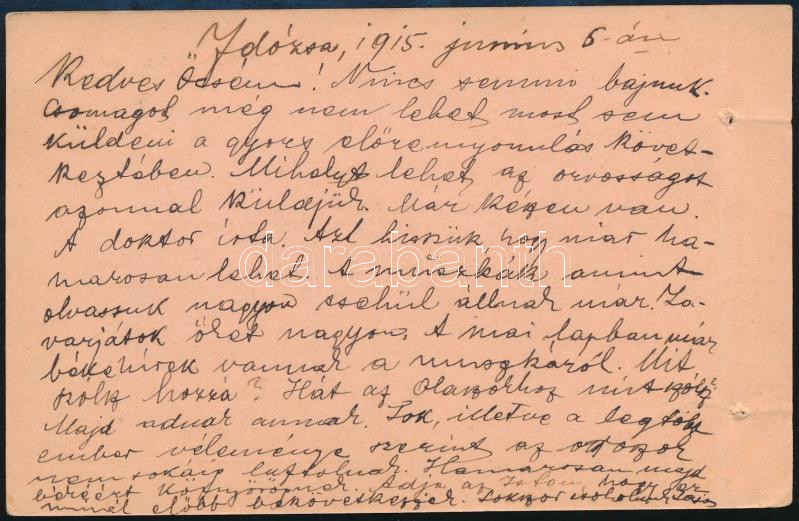 Jdózsa, 1915. junius 6-án
Kedves Öcsém! Nincs semmi bajunk.
Csomagot még nem lehet most sem
küldeni a gyors előrenyomulás követ-
keztében. Mihelyt lehet az orvosságot
azonnal küldjük. Már készen van.
A doktor írta. Azt hisszük hogy már ha-
marosan lehet. A muszkák amint
olvassuk nagyon csehül állnak már. Za-
varjátok őket nagyon. A mai lapban már
békehírek vannak a muszkáról. Mit
szólsz hozzá? Hát az olaszokhoz mit szólsz?
Majd adnak annak. Sok, illetve a legtöbb
ember véleménye szerint az olaszok
nem sokáig Hamarosan majd
békéért könyörögnek. Adja az Isten, hogy ez
minél előbb bekövetkezzék. Sokszor csókolunk
darabanth